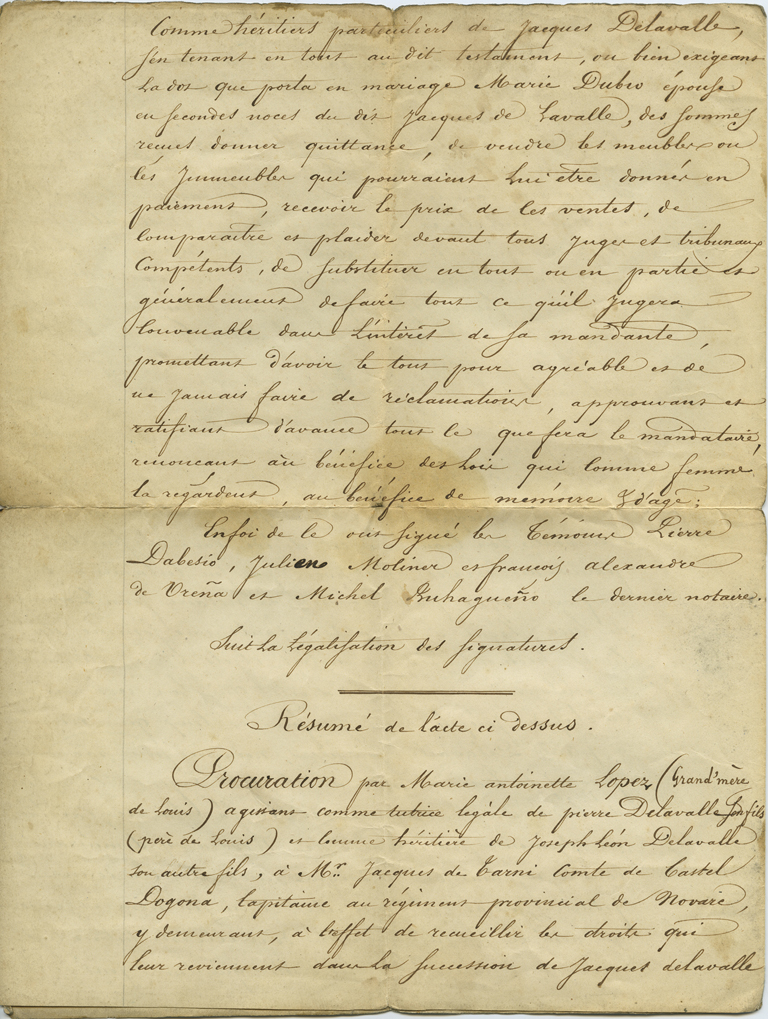 Comme héritiers particuiliers de Jacques Delavalle,
s'en tenant en tout au dit testament, ou bien exigeant
la dot que porta en mariage Marie Dubro épouse
en secondes noces du dit Jacques de Lavalle, des sommes
recues donner quittance, de vendre les meubles ou
les Immeubles qui pourraient lui être donnés en
paiement, recevoir le prix de les ventes, de
comparaître et plaider devant tous Juges et tribunaux
compétents, de substituer en tout ou en partie et
généralement de faire tout ce qu'il Jugera
convenable dans l'intérêt de sa mandante,
promettant d'avoir le tout pour agréable et de
ne jamais faire de réclamations, approuvant et
ratifiant d'avance tout ce que fera le mandataire,
renoncant au bénéfice des Lois qui comme femme
la regardent, au bénéfice de mémoire & d'age;
Enfoi de ce ont signé les Témoins Pierre
Dabesio, Julien Moliner et francois alexandre
de Ureña et Michel Buhagueño le dernier notaire.
Suit la légalisation des signatures.
Résumé de l'acte ci dessus.
Procuration par Marie antoinette Lopez (Grand'mère
de Louis) agissant comme tutrice legále de pierre Delavalle son fils
(père de Louis) et comme héritière de Joseph Léon Delavalle
son autre fils, à Mr. Jacques de Tarni Comte de Castel
Dogona, Capitaine au régiment provincial de Novare,
y demeurant, à l'effet de recueillir les droits qui
leur reviennent dans la succession de Jacques delavalle